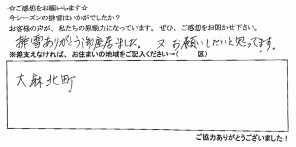 ☆ご感想をお願いします☆
今シーズンの排雪はいかがでしたか？
お客様の声が、私たちの原動力になっています。ぜひ、ご感想をお聞かせ下さい。
排雪ありがとう御座居ました。又お願いしたいと思ってます。
※差支えなければ、お住まいの地域をご記入ください→( 区)
大麻北町
ご協力ありがとうございました！